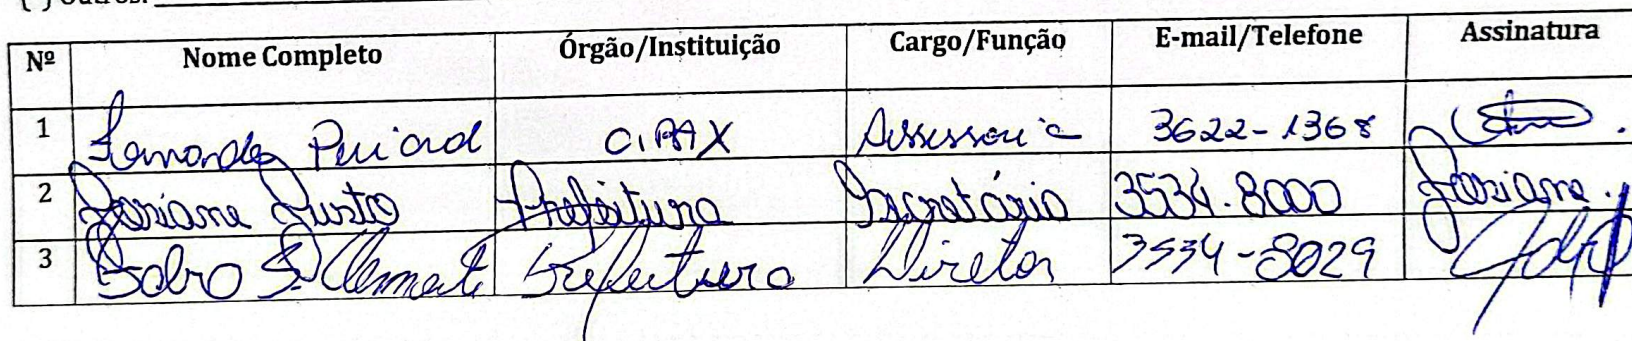 ( ) Outros:
Nº Nome Completo Órgão/Instituição Cargo/Função E-mail/Telefone Assinatura
1 Fernanda Periard CIPAX Assessoria 3622-1368
2 Justo Prefeitura Secretário 3534.8000
3 Pedro S. Clemente Prefeitura Diretor 3534-8029